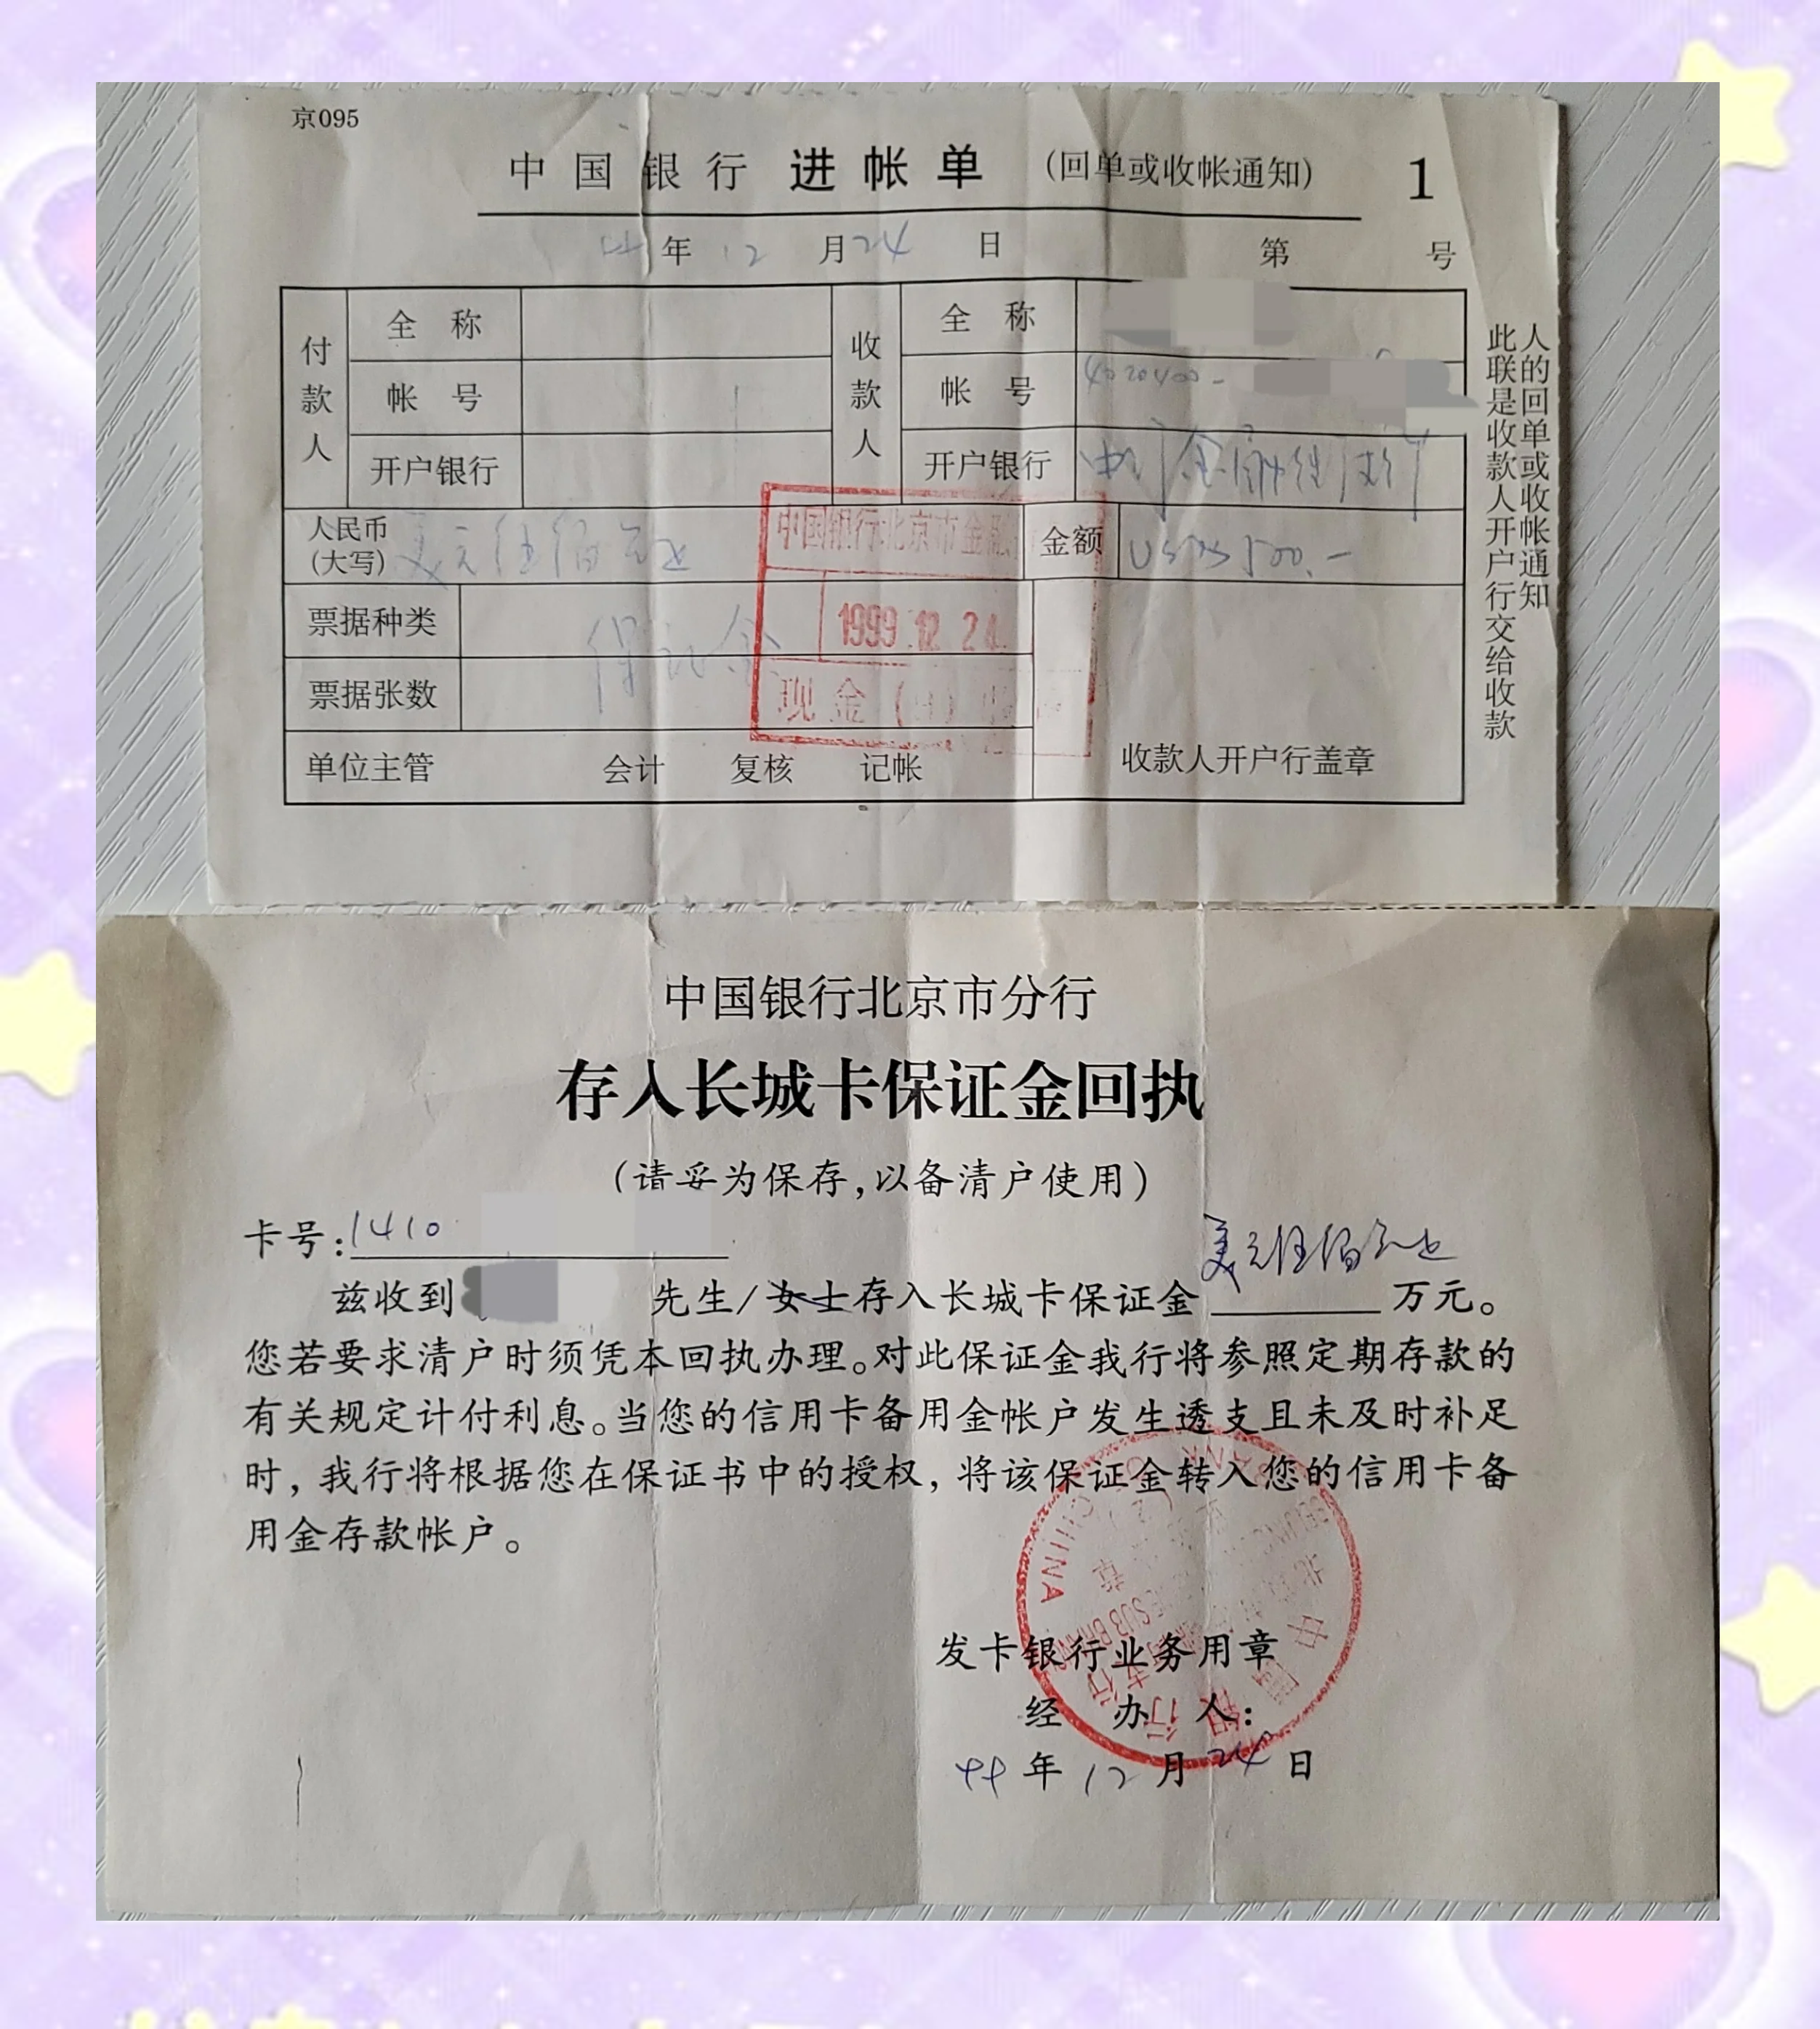 京095
中国银行 进帐单 (回单或收帐通知) 1
年 12 月 24 日 第 号
付款人 全称 收款人 全称
帐号 帐号 4020400-
开户银行 开户银行
人民币(大写) 美元伍佰元正 金额 US$500.-
票据种类 保证金
票据张数
单位主管 会计 复核 记帐 收款人开户行盖章
此联是收款人开户行交给收款
人的回单或收帐通知
中国银行北京市金融
1999.12.24
现金
中国银行北京市分行
存入长城卡保证金回执
(请妥为保存,以备清户使用)
卡号:1410
美元伍佰元正
兹收到 先生/女士存入长城卡保证金 万元。
您若要求清户时须凭本回执办理。对此保证金我行将参照定期存款的
有关规定计付利息。当您的信用卡备用金帐户发生透支且未及时补足
时,我行将根据您在保证书中的授权,将该保证金转入您的信用卡备
用金存款帐户。
发卡银行业务用章
经办人:
99年12月24日
BANK OF CHINA
中国银行
SUB BRANCH